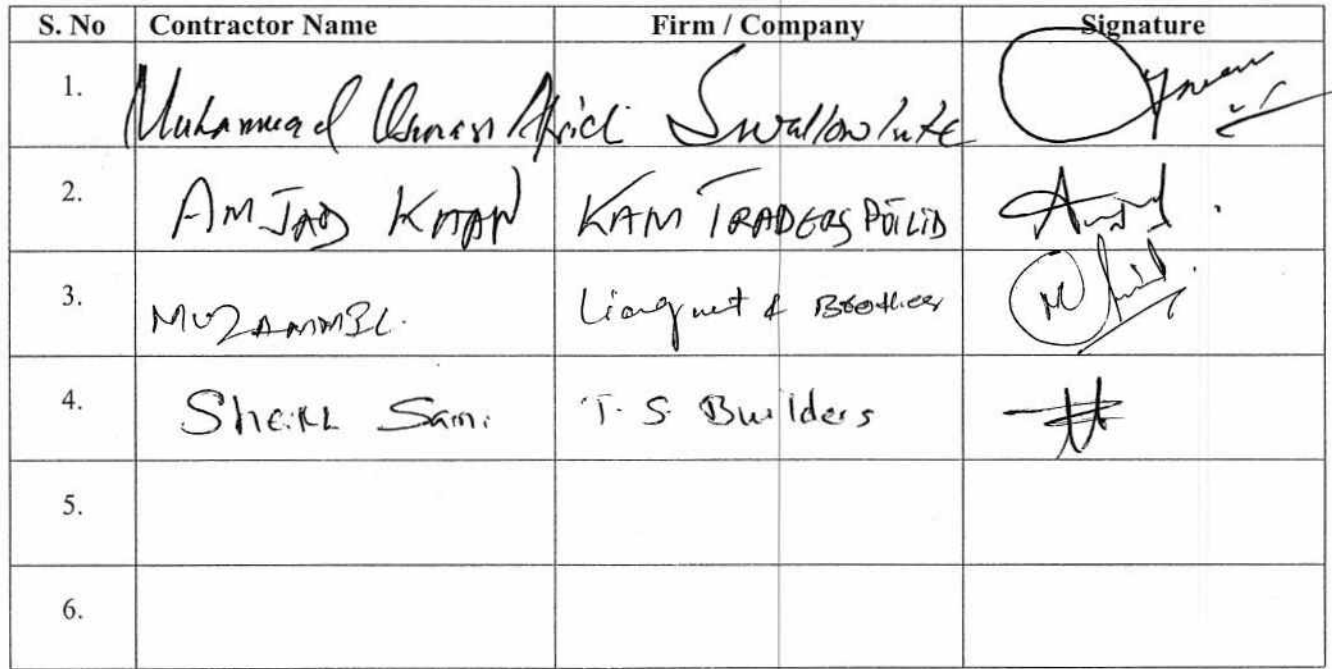 S. No Contractor Name Firm / Company Signature
1. Muhammad Usman Afridi Swallow
2. AMJAD KHAN KAM TRADERS PVT LTD
3. MUZAMMIL. & Brother
4. Sheikh Sami T. S. Builders
5.
6.